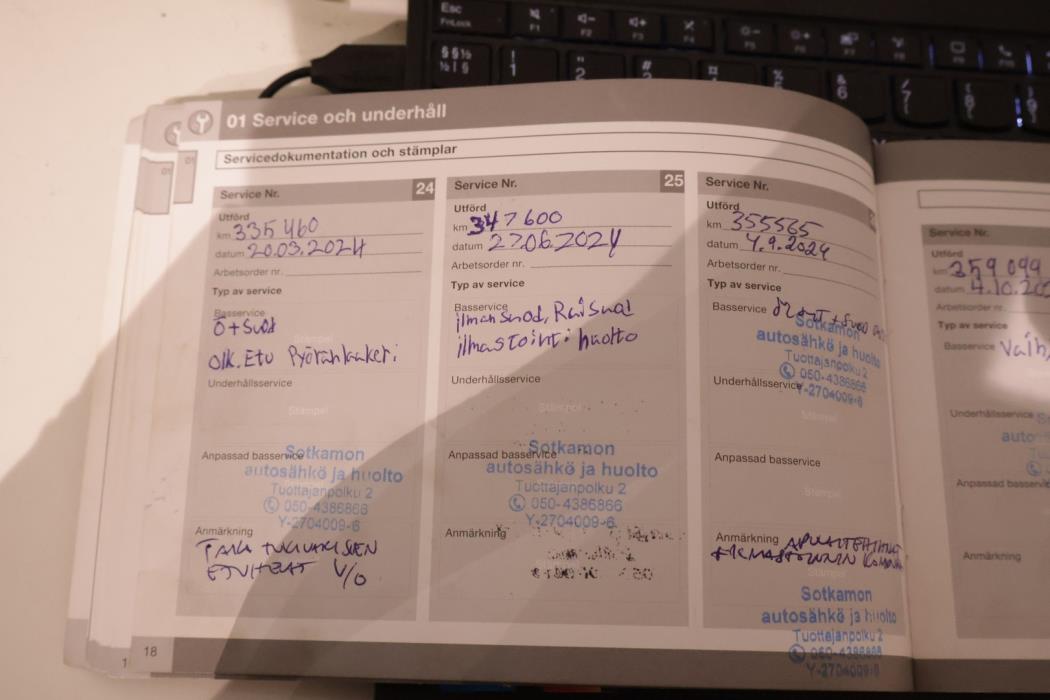 Esc
FnLock
F1
F2
F3
F4
§ § ½
½ | §
!
1
"
2
#
&
6
/
7
01 Service och underhåll
Servicedokumentation och stämplar
01
01
Service Nr. 24
Utförd
km 335 460
datum 20.03.2024
Arbetsorder nr.
Typ av service
Basservice
Ö + Suod
Oik. Etu Pyöränlaakeri
Underhållsservice
Stämpel
Anpassad basservice
Sotkamon
autosähkö ja huolto
Tuottajanpolku 2
050-4386866
Y-2704009-6
Anmärkning
TAKA TUKIVARSIEN
ETUHELAT V/O
Service Nr. 25
Utförd
km 347 600
datum 27.06.2024
Arbetsorder nr.
Typ av service
Basservice
ilmansuod, Raisuod
ilmastointi huolto
Underhållsservice
Stämpel
Anpassad basservice
Sotkamon
autosähkö ja huolto
Tuottajanpolku 2
050-4386866
Y-2704009-6
Anmärkning
Service Nr.
Utförd
km 355565
datum 4.9.2024
Arbetsorder nr.
Typ av service
Basservice
Sotkamon
autosähkö ja huolto
Tuottajanpolku 2
050-4386866
Y-2704009-6
Underhållsservice
Stämpel
Anpassad basservice
Stämpel
Anmärkning
Sotkamon
autosähkö ja huolto
Tuottajanpolku 2
050-4386866
Y-2704009-6
Service Nr.
Utförd
km 359 099
datum 4.10.
Arbetsorder nr.
Typ av service
Basservice Vaih
Underhållsservice
Anpassad basservice
Anmärkning
18